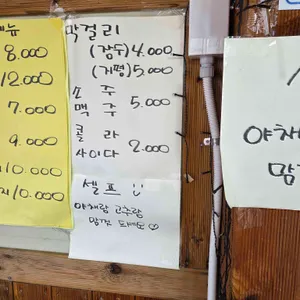 메뉴
8.000
12.000
7.000
9.000
10.000
10.000
막걸리
(감두) 4.000
(지평) 5.000
소주
맥주 5.000
콜라
사이다 2.000
셀프
야채랑 고추랑
맘껏 드세요♡
야채
맘껏